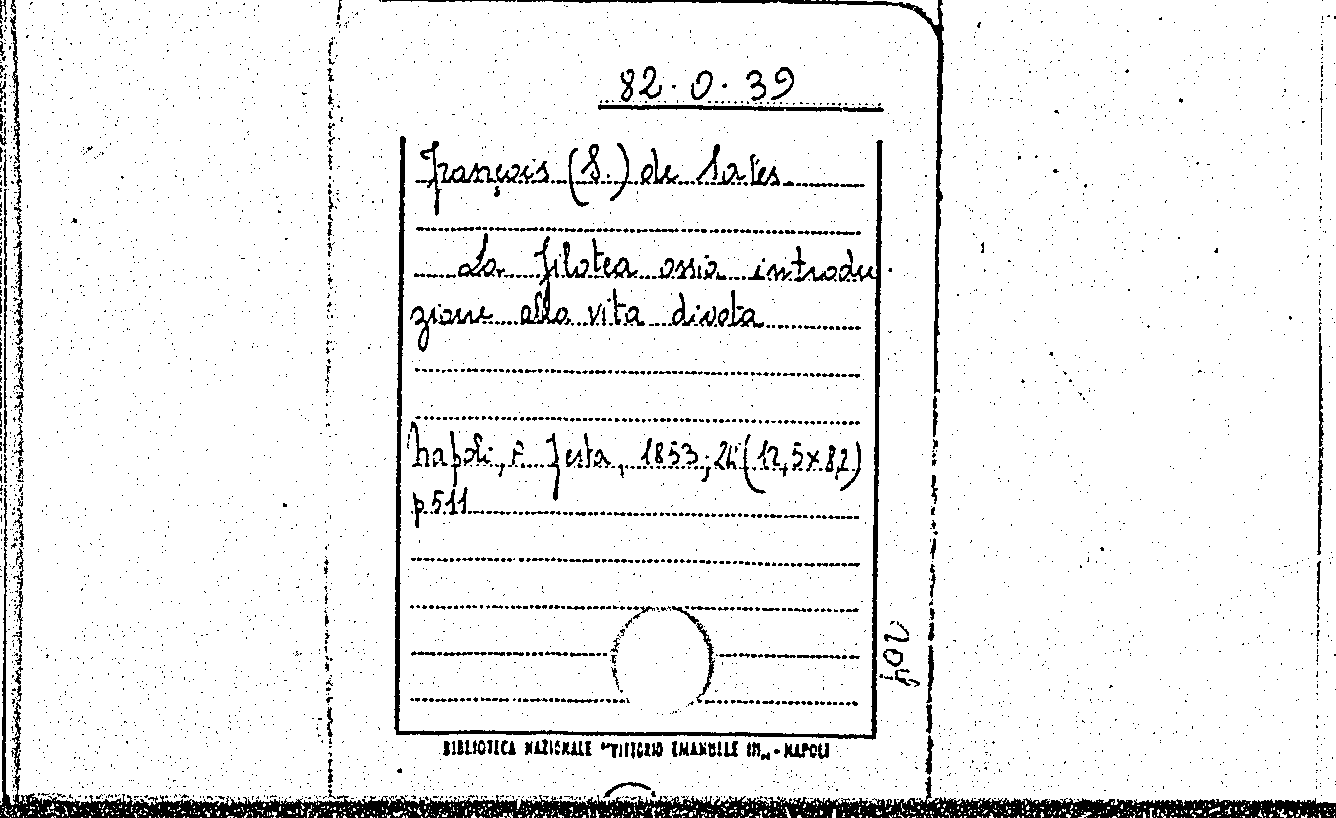 82.0.39
François (S.) de Sales
La filotea ossia introdu-
zione alla vita divota
Napoli, F. Testa, 1853; 24° (12,5x8,2)
p 511
BIBLIOTECA NAZIONALE "VITTORIO EMANUELE III" - NAPOLI